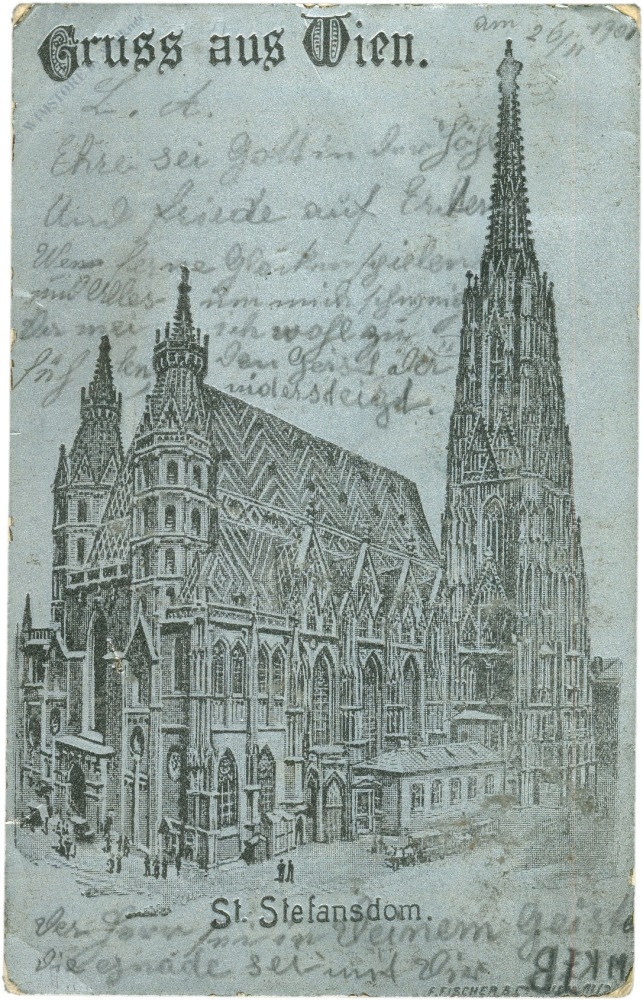 Gruss aus Wien.
am 26/11 190
L. A.
Ehre sei Gott in der Höhe
Und Friede auf Erden
Wenn ferne Glocken spielen
und Alles um mich schweig
ich wohl zu
füh len den Geist der
nidersteigt.
St. Stefansdom.
Der Herr sei in Deinem Geiste
die gnade sei mit Dir
F. FISCHER &